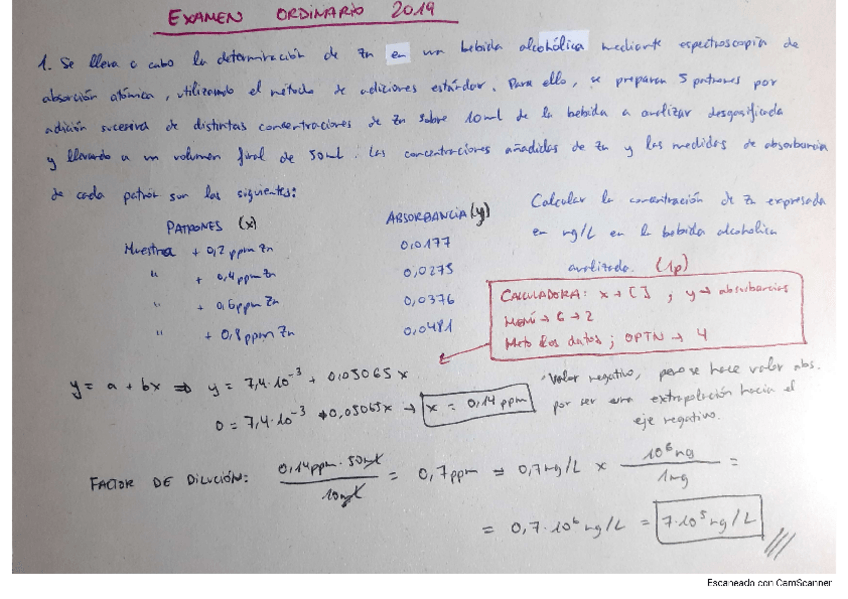 EXAMEN ORDINARIO 2019
1. Se lleva a cabo la determinación de Zn en una bebida alcohólica mediante espectroscopía de
absorción atómica, utilizando el método de adiciones estándar. Para ello, se preparan 5 patrones por
adición sucesiva de distintas concentraciones de Zn sobre 10ml de la bebida a analizar desgasificada
y llevando a un volumen final de 50ml. Las concentraciones añadidas de Zn y las medidas de absorbancia
de cada patrón son las siguientes:
PATRONES (x) ABSORBANCIA (y)
Muestra + 0,2 ppm Zn 0,0177
" + 0,4 ppm Zn 0,0275
" + 0,6 ppm Zn 0,0376
" + 0,8 ppm Zn 0,0481
Calcular la concentración de Zn expresada
en ng/L en la bebida alcohólica
analizada. (1p)
CALCULADORA: x → [ ] ; y → absorbancias
MENÚ → 6 → 2
Meto los datos ; OPTN → 4
y = a + bx ⇒ y = 7,4·10⁻³ + 0,05065 x
0 = 7,4·10⁻³ + 0,05065x → x = 0,14 ppm
Valor negativo, pero se hace valor abs.
por ser una extrapolación hacia el
eje negativo.
FACTOR DE DILUCIÓN: 0,14ppm · 50ml / 10ml = 0,7ppm = 0,7mg/L × 10⁶ng / 1mg =
= 0,7·10⁶ ng/L = 7·10⁵ ng/L
Escaneado con CamScanner